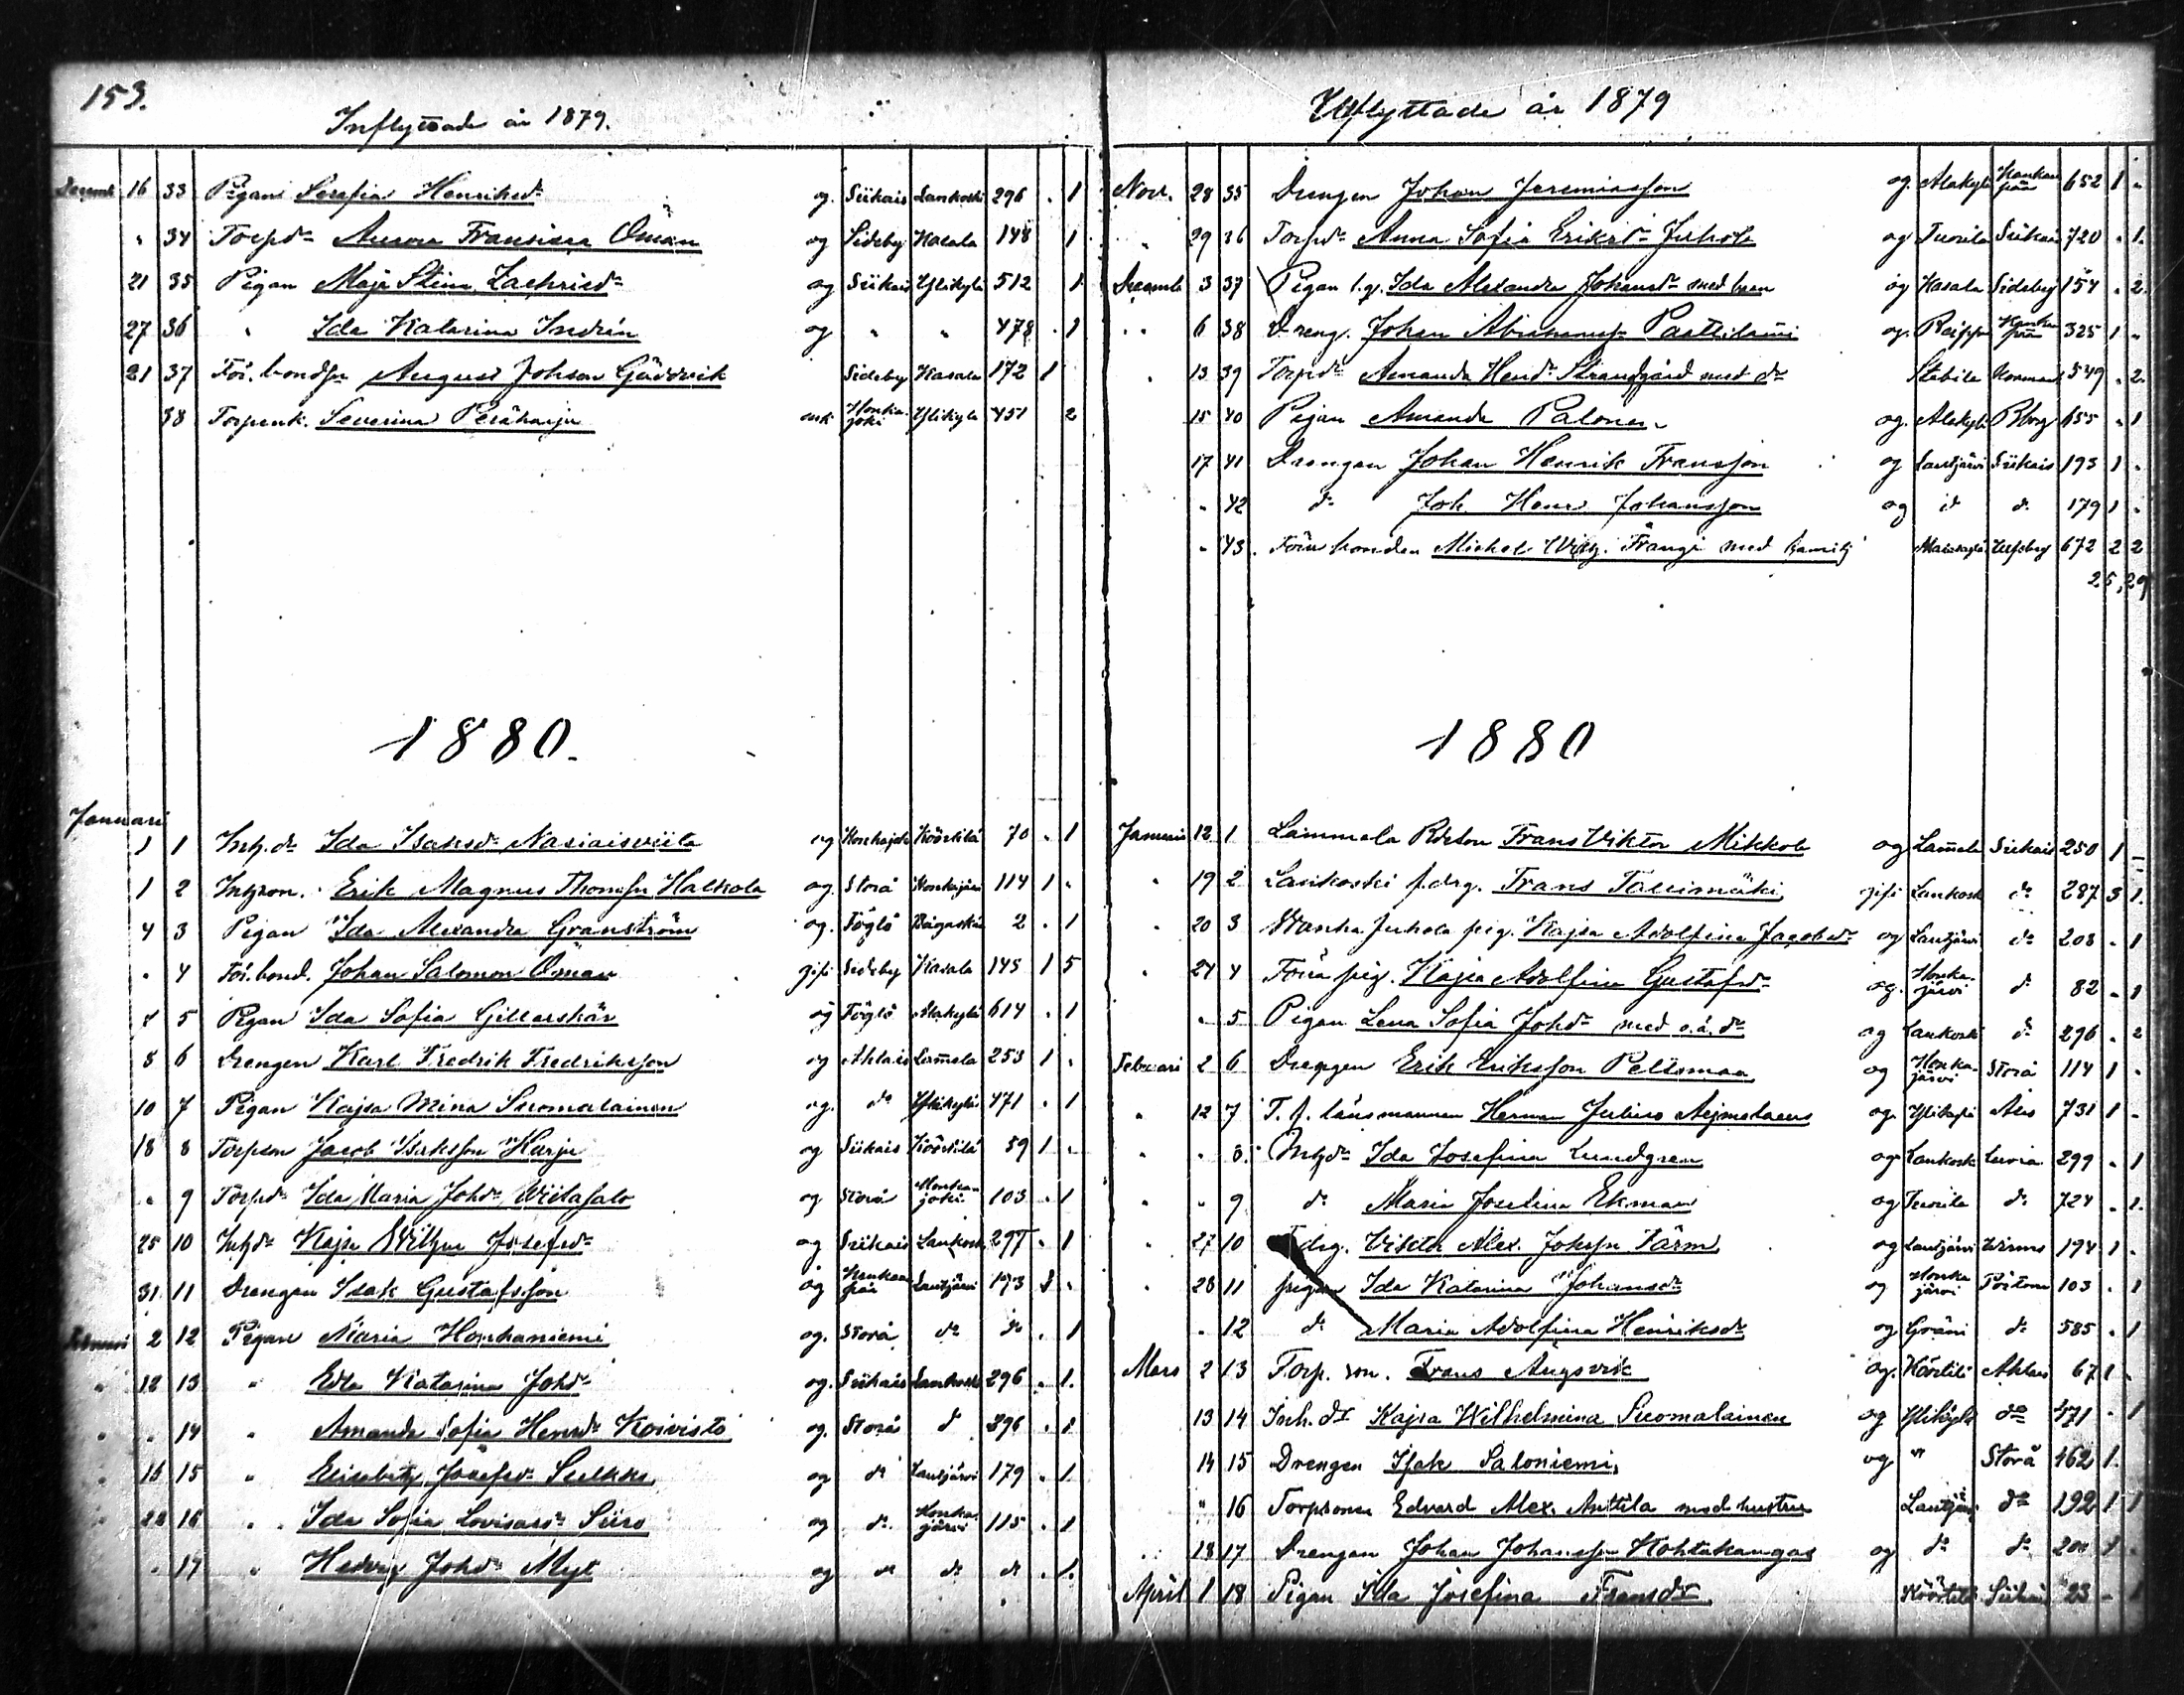 153.
Inflyttade år 1879.
Decemb 16 33 Pigan Serafia Henriksdr og. Siikais Lankoski 296 . 1
" 34 Torpdr Aurora Fransiska Öman og Sideby Kasala 148 1
21 35 Pigan Maja Stina Zachrisdr og Siikais Ylikylä 512 1
27 36 " Ida Katarina Indrén og " " 478 . 1
21 37 För. bondsn August Johsson Gäddvik Sideby Kasala 172 1
38 Torpenk. Severina Peräharju enk Honkajoki Ylikylä 451 2
1880.
Januari
1 1 Inh.dr Ida Isaksdr og Honkajoki Köörtilä 70 . 1
1 2 Inhson. Erik Magnus Thomssn Halkola og. Storå Honkajärvi 114 1 .
4 3 Pigan Ida Alexandra Granström og. Föglö 2 . 1
. 4 För. bond. Johan Salomon Öman gift Sideby Kasala 145 1 5
5 Pigan Ida Sofia Gillarskär og Föglö Alakylä 614 . 1
8 6 Drengen Karl Fredrik Fredriksson og Ahlais Lam̄ela 253 1 .
10 7 Pigan Kajsa Mina Suomalainen og. dr Ylikylä 471 . 1
18 8 Torpson Jacob Isaksson Harju og Siikais Köörtilä 59 1 .
. 9 Torpdr Ida Maria Johdr Wiitasalo og Storå Honkajoki 103 . 1
25 10 Inhdr Kajsa Wilhna Josefsdr og Siikais Lankosk 297 . 1
31 11 Drengen Isak Gustafsson og Lautjärvi 173 1 .
Februari 2 12 Pigan Maria Honkaniemi og. Storå dr dr . 1
" 12 13 " Edla Katarina Johdr og. Siikais Lankoski 296 . 1.
" . 14 " Amanda Sofia Henrdr Koivisto og. Storå d 296 . 1
" 15 " Elisabeth Josefsdr Sulkko og dr Lautjärvi 179 . 1
" 22 16 " Ida Sofia Lovisasdr Siiro og dr. Honkajärvi 115 . 1
. 17 " Hedvig Johdr Myt og dr dr dr . 1.
Utflyttade år 1879
Nov. 28 35 Drengen Johan Jeremiasson og. Alakylä 652 1 .
" 29 36 Torpdr Anna Sofia Eriksdr Juhola og Tuorila Siikais 720 . 1.
Decemb 3 37 Pigan l.g. Ida Alexandra Johansdr med barn og Kasala Sideby 154 . 2.
" 6 38 Dreng. Johan Abrahamss. Paattilami og. 325 1 .
" 13 39 Torpdr Amanda Hendr Strandgård med dr Stabila Normark 549 . 2.
15 40 Pigan Amanda Palonen og. Alakylä Bborg 655 . 1
17 41 Drengen Johan Henrik Fransson og Lautjärvi Siikais 193 1 .
. 42 dr Joh Henr Johansson og d d. 179 1 .
. 43. Förra bonden Michel Frangi med familj Ulfsby 672 2 2
25,29
1880
Januari 12 1 Lammela Rdston Frans Viktor Mikkola og Lam̄ela Siikais 250 1 –
. 19 2 Lankoski f.drg. Frans Talimäki gift Lankosk dr 287 3 1.
. 20 3 Wanha Juhola pig. Kajsa Adolfina Jacobsdr og Lautjärvi dr 208 . 1
. 24 4 Förra pig. Kajsa Adolfina Gustafsdr og. Honkajärvi d 82 . 1
. 5 Pigan Lena Sofia Johdr med o.ä. dr og Lankosk dr 296 . 2
Februari 2 6 Drengen Erik Eriksson Peltomaa og Honkajärvi Storå 114 1 .
" 12 7 T. f. länsmannen Herman Julius Aejmelaeus og. Yliskylä 731 1 .
. . 8. Inhdr Ida Josefina Lundgren og. Lankosk Luvia 299 . 1
. . 9 dr Maria Josefina Ekman og Tuorila dr 724 . 1.
" 27 10 drg. Viktor Alex. Johssn Färm og Lautjärvi 194 1 .
. 28 11 pigan Ida Katarina Johansdr og Honkajärvi Påstom 103 . 1
. 12 dr Maria Adolfina Henriksdr og Gräni dr 585 . 1
Mars 2 13 Torp. son. Frans Augsvik og. Körtilä Ahlais 67 1 .
13 14 Inh. dr Kajsa Wilhelmina Suomalainen og Yliskylä dr 471 . 1
14 15 Drengen Isak Saloniemi og " Storå 462 1.
" 16 Torpsonen Edvard Alex. Anttila med hustru Lautjärvi dr 192 1 1
18 17 Drengen Johan Johansson Kohtakangas og dr dr 200 1 .
April 1 18 Pigan Ida Josefina Fransdr Köörtilä Siikais 23 – 1